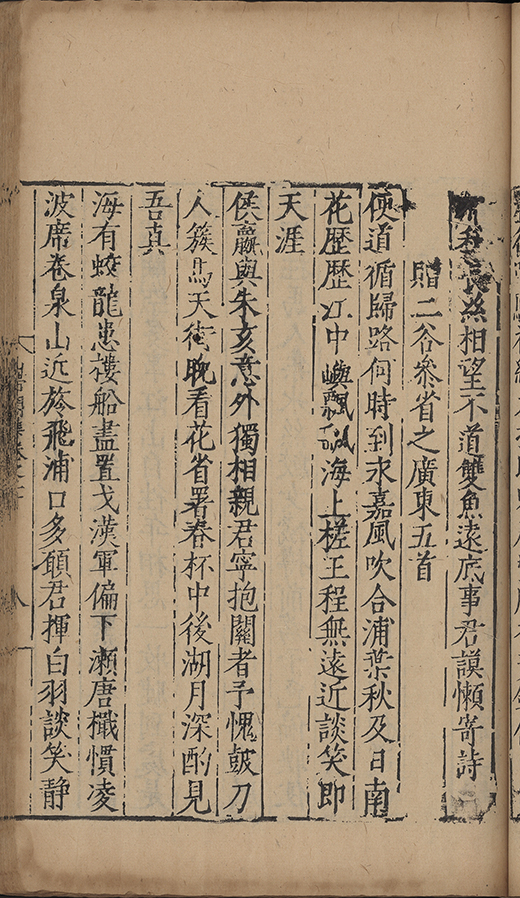 相望不道雙魚遠底事君謨懶寄詩
贈二谷叅省之廣東五首
便道循歸路何時到永嘉風吹合浦葉秋及日南
花歴歴江中嶼飄飄海上槎王程無遠近談笑即
天涯
侯嬴與朱亥意外獨相親君寧抱關者予愧皷刀
人簇馬天街晚看花省署春杯中後湖月深酌見
吾真
海有蛟龍患樓船盡置戈漢軍偏下瀨唐檝慣凌
波席卷泉山近旍飛浦口多願君揮白羽談笑静